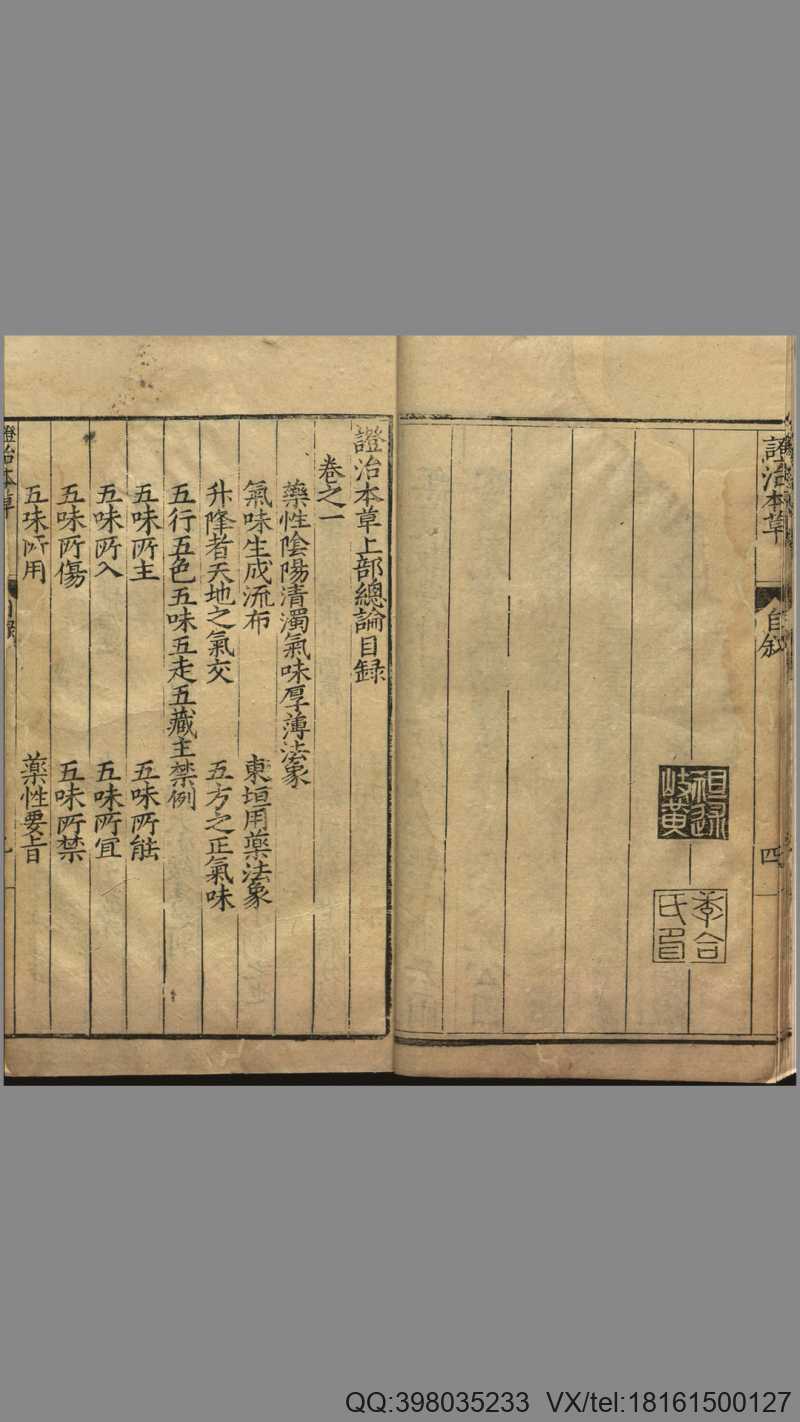 證治本草
自叙
四
祖述
岐黃
氏
證治本草上部總論目録
卷之一
藥性陰陽清濁氣味厚薄法象
氣味生成流布 東垣用藥法象
升降者天地之氣交 五方之正氣味
五行五色五味五走五藏主禁例
五味所主 五味所能
五味所入 五味所宜
五味所傷 五味所禁
五味所用 藥性要旨
證治本草
QQ:398035233 VX/tel:18161500127